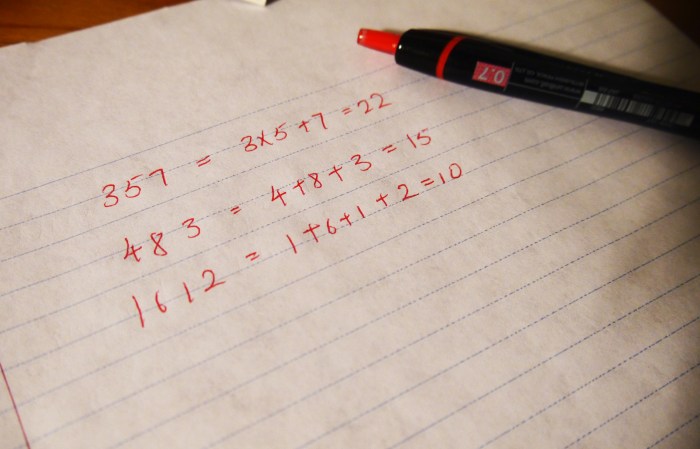 0.7
357 = 3×5+7 = 22
483 = 4+8+3 = 15
1612 = 1+6+1+2 = 10